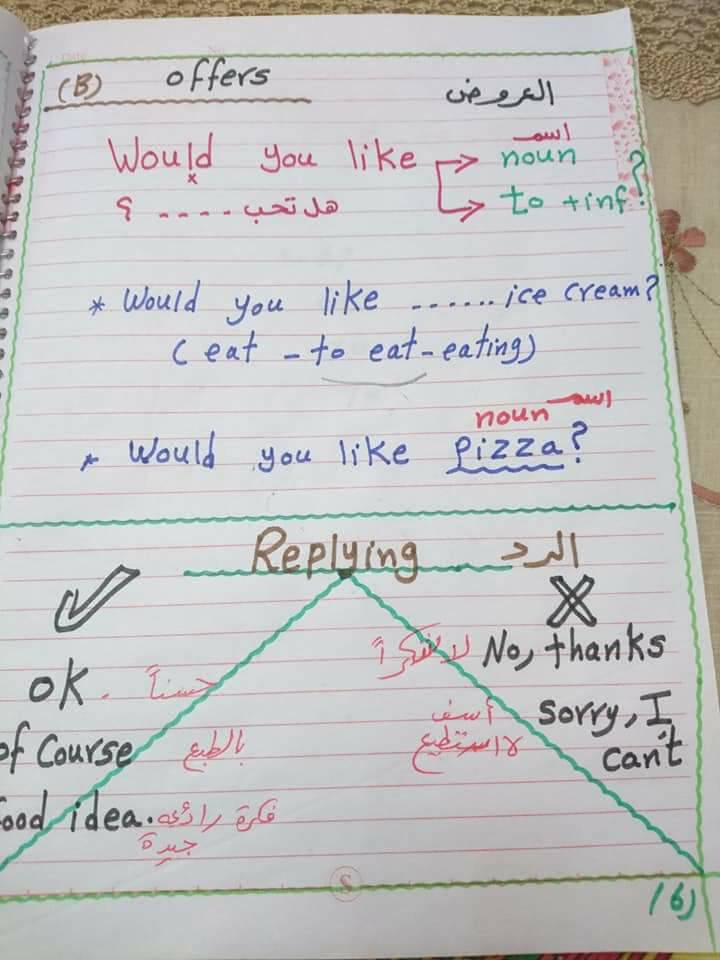 (B) offers العروض
اسم
Would you like noun
x
هل تحب - - - - ؟ to + inf?
* Would you like ...... ice cream?
( eat - to eat - eating)
noun اسم
* Would you like pizza?
Replying الرد
لا شكراً No, thanks
ok. حسناً
أسف sorry, I
of Course بالطبع لا استطيع can't
ood idea. فكرة رائعة
جيدة
(6)